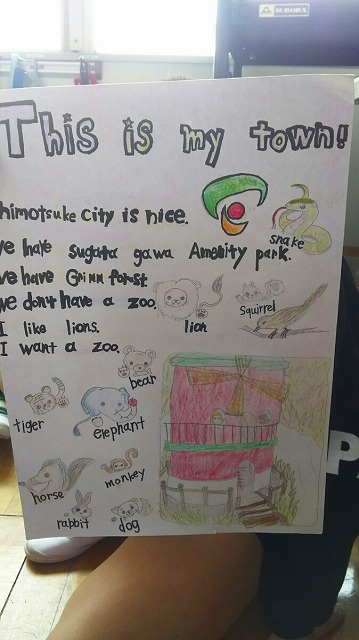 AURORA
This is my town!
himotsuke city is nice.
we have sugata gawa Amenity park.
we have Grimm forst.
we don't have a zoo.
I like lions.
I want a zoo.
snake
lion
Squirrel
bear
tiger
elephant
horse
monkey
rabbit
dog
P